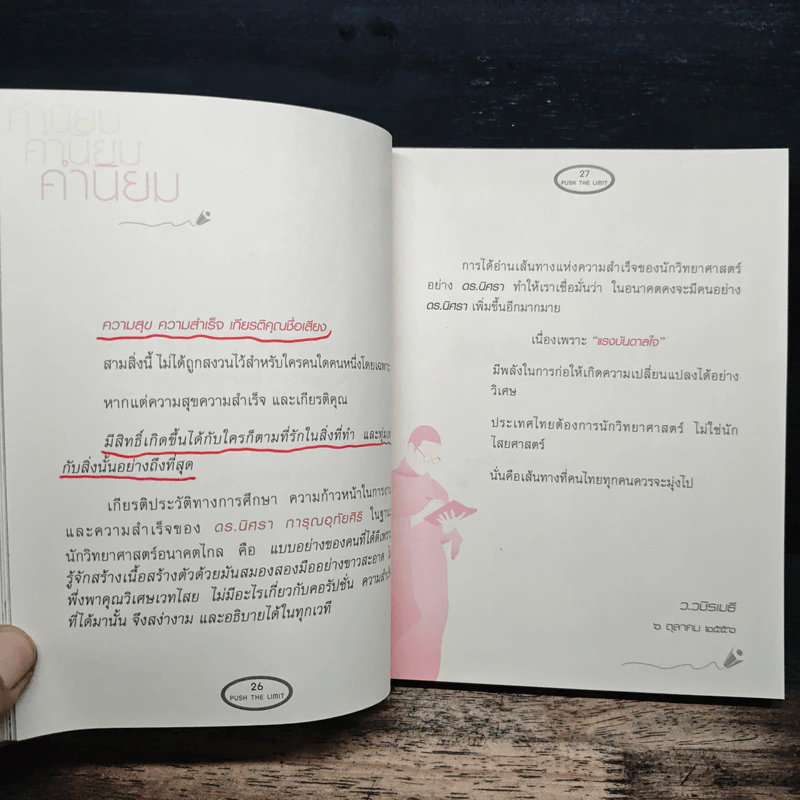 คำนิยม
คำนิยม
คำนิยม
ความสุข ความสำเร็จ เกียรติคุณชื่อเสียง
สามสิ่งนี้ ไม่ได้ถูกสงวนไว้สำหรับใครคนใดคนหนึ่งโดยเฉพาะ
หากแต่ความสุขความสำเร็จ และเกียรติคุณ
มีสิทธิ์เกิดขึ้นได้กับใครก็ตามที่รักในสิ่งที่ทำ และทุ่มเท
กับสิ่งนั้นอย่างถึงที่สุด
เกียรติประวัติทางการศึกษา ความก้าวหน้าในการงาน
และความสำเร็จของ ดร.นิศรา การุณอุทัยศิริ ในฐานะ
นักวิทยาศาสตร์อนาคตไกล คือ แบบอย่างของคนที่ได้ดีเพราะ
รู้จักสร้างเนื้อสร้างตัวด้วยมันสมองสองมืออย่างขาวสะอาด
พึ่งพาคุณวิเศษเวทไสย ไม่มีอะไรเกี่ยวกับคอรัปชั่น ความสำเร็จ
ที่ได้มานั้น จึงสง่างาม และอธิบายได้ในทุกเวที
26
PUSH THE LIMIT
27
PUSH THE LIMIT
การได้อ่านเส้นทางแห่งความสำเร็จของนักวิทยาศาสตร์
อย่าง ดร.นิศรา ทำให้เราเชื่อมั่นว่า ในอนาคตคงจะมีคนอย่าง
ดร.นิศรา เพิ่มขึ้นอีกมากมาย
เนื่องเพราะ "แรงบันดาลใจ"
มีพลังในการก่อให้เกิดความเปลี่ยนแปลงได้อย่าง
วิเศษ
ประเทศไทยต้องการนักวิทยาศาสตร์ ไม่ใช่นัก
ไสยศาสตร์
นั่นคือเส้นทางที่คนไทยทุกคนควรจะมุ่งไป
ว.วชิรเมธี
๖ ตุลาคม ๒๕๕๖